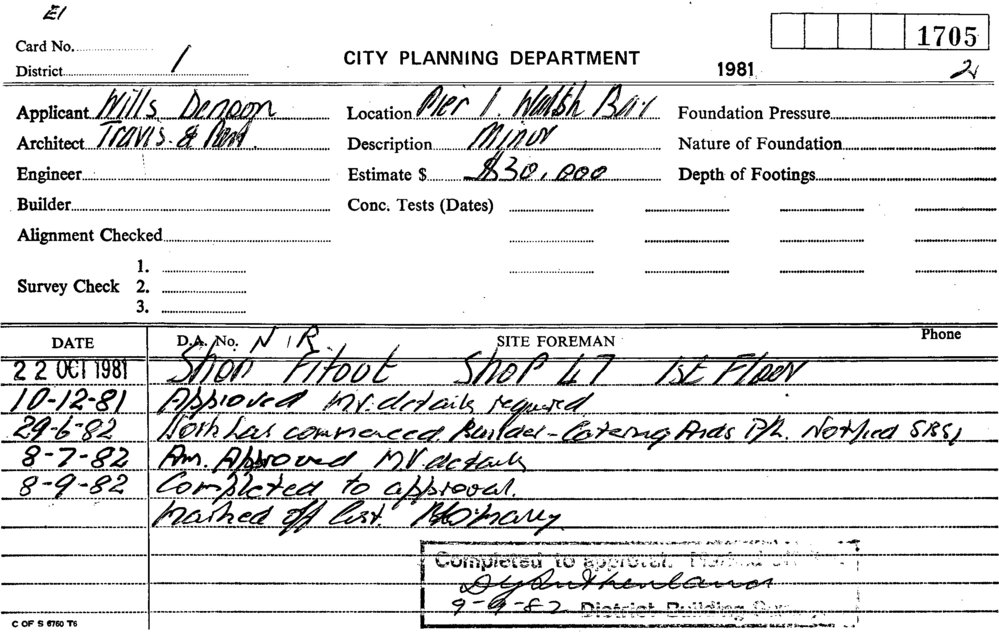 E1
1705
Card No.
CITY PLANNING DEPARTMENT
District 1
1981
2
Applicant Wills Denoon
Location Pier 1. Walsh Bay
Foundation Pressure
Architect Travis &
Description Minor
Nature of Foundation
Engineer
Estimate $ $30,000
Depth of Footings
Builder
Conc. Tests (Dates)
Alignment Checked
1.
Survey Check 2.
3.
DATE
D.A. No. N/R.
SITE FOREMAN
Phone
22 OCT 1981 Shop Fitout Shop 47 1st Floor
10-12-81 Approved MV. details required
29-6-82 Work has commenced. Builder - Catering Aids P/L. Notified
8-7-82 Am. Approved MV. details
8-9-82 Completed to approval.
marked off list.
Completed to approval. Marked off
9-9-82 District Building
C OF S 6760 T6